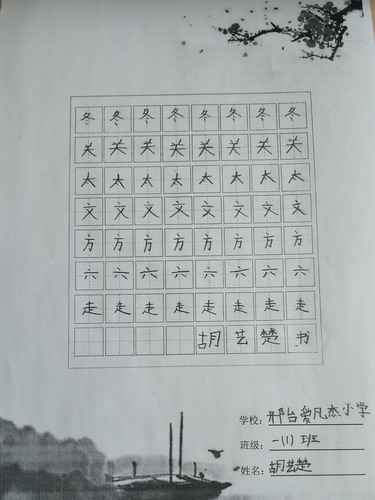 冬冬冬冬冬冬冬冬
关关关关关关关关
太太太太太太太太
文文文文文文文文
方方方方方方方方
六六六六六六六六
走走走走走走走走
胡艺楚书
学校：邢台爱凡杰小学
班级：一(1)班
姓名：胡艺楚